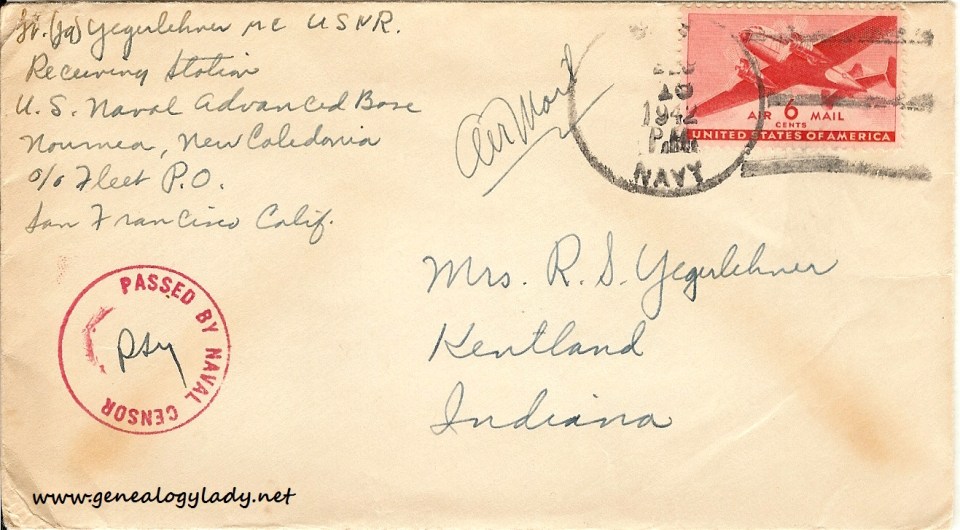 Lt. (jg) Yegerlehner MC USNR.
Receiving Station
U.S. Naval Advanced Base
Noumea, New Caledonia
c/o Fleet P.O.
San Francisco Calif.
Air Mail
10
1942
P.M.
NAVY
AIR 6 MAIL
CENTS
UNITED STATES OF AMERICA
Mrs. R. S. Yegerlehner
Kentland
Indiana
PASSED BY NAVAL CENSOR
RSY
www.genealogylady.net